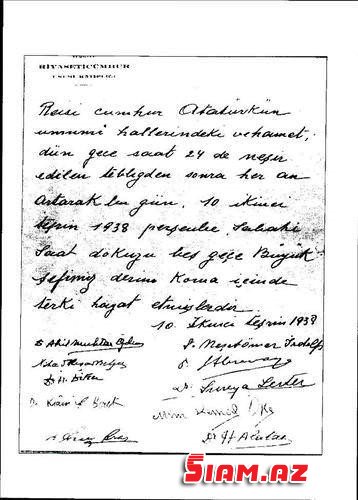 RİYASETİCÜMHUR
UMUMİ KATİPLİĞİ
Reisi cumhur Atatürkün
umumi hallerindeki vehamet,
dün gece saat 24 de neşir
edilen tebligden sonra her an
artarak bu gün, 10 ikinci
teşrin 1938 perşenbe sabahı
saat dokuzu beş geçe Büyük
şefimiz derin koma içinde
terki hayat etmişlerdir
10. İkinci teşrin 1938
Dr Akil Muhtar Özden
Dr. Neşet Ömer İrdelp
Dr. Süreya Serter
Mim Kemal Öke
SIAM.AZ